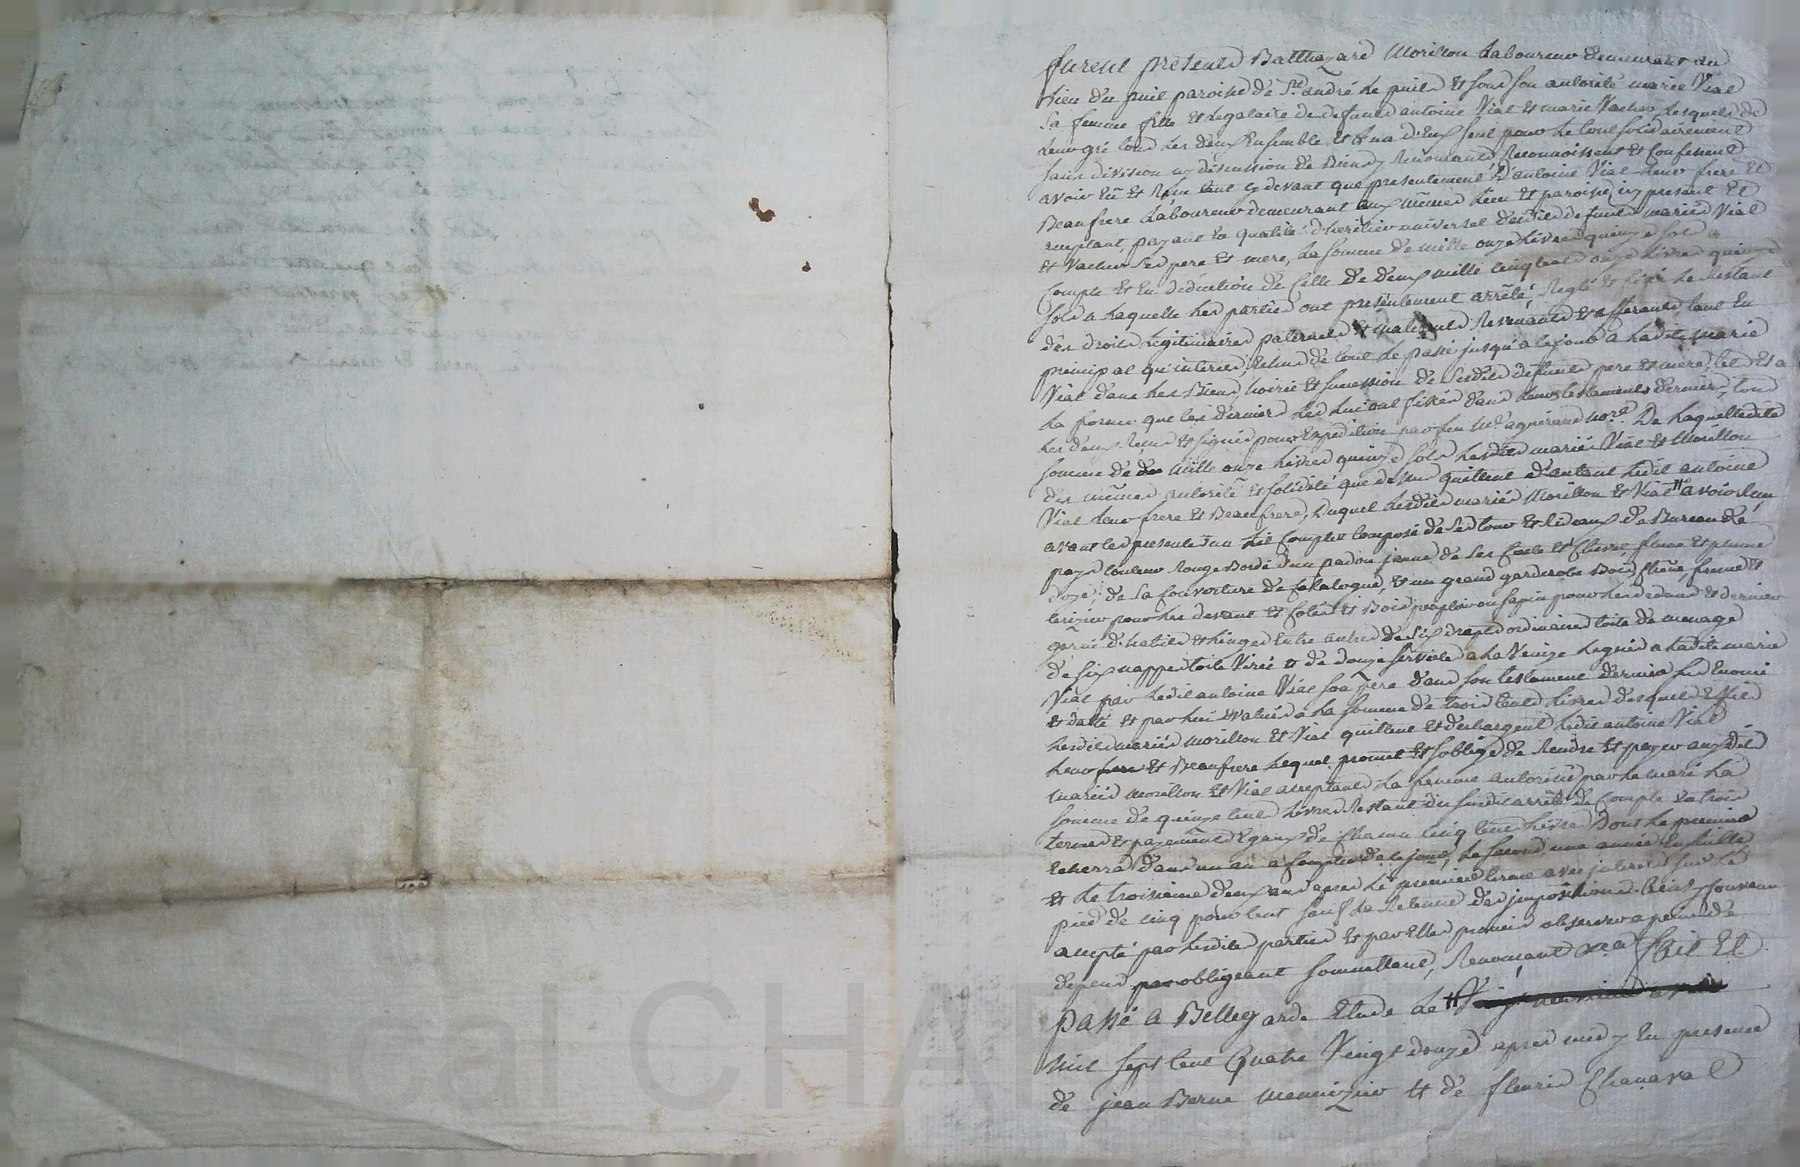 furent présents Balthazard Morillon Laboureur demeurant au
lieu du puil paroisse de St andré Le puils Et sous son autorité marie Vial
Sa femme fille Et Legataire de defunts antoine Vial Et marie Vacher, Lesquels de
Leur gré tous Les deux Ensemble Et L'un d'Eux seul pour Le tout solidairement
sans division ny discussion de Biens y Renonçants, Reconnoissent Et Confessent
avoir Eu Et Reçu tant cy devant que presentement d'antoine Vial Leur frere Et
Beaufrere Laboureur demeurant aux mêmes Lieu et paroisse icy present Et
acceptant payant En qualité d'heritier universel desdits defunts mariés Vial
et Vacher Ses pere Et mere, La somme de mille onze Livres quinze sols a
Compte Et En déduction de Celle de deux mille cinq cents onze Livres quinze
sols a Laquelle Les parties ont présentement arrêté, Reglé Et fixé Le Restant
des droits Légitimaires paternels Et maternels Revenants Et afferants tant En
principal qu'interets, Echus de tout Le passé jusqu'a ce jour a Ladite marie
Vial dans Les Biens, hoirie Et succession de Sesdits défunts pere Et mere, tel Et a
La forme que ces derniers Les Lui ont fixés dans Leurs testaments derniers, tous
Les deux Reçus Et signés pour Expédition par feu Me agniraud nore. De Laquelle dite
somme de mille onze Livres quinze sols Lesdits mariés Vial et Morillon
des mêmes autorité Et solidité que dessus quittent d'autant Ledit antoine
Vial Leur frere Et Beaufrere, duquel Lesdits mariés Morillon Et Vial # avoir Reçu
avant Les presentes un Lit Complet composé de Ses tour Et rideaux de Bureau de
pays Couleur Rouge Bordé d'un padou jaune de Ses Coete Et Chevet plume Et plume
d'oye, de Sa Couverture de Catalogne, Et un grand garderobe Bois chêne, frene Et
cerizier pour Les devant Et Cotés Et Bois peuplier ou sapin pour Les dedans Et derrier
garni d'habits Et Linges Entre autres de Six draps ordinaires toile de menage
de six nappes toile Et de douze serviete a La Venize Legués a Ladite marie
Vial par Ledit antoine Vial son pere dans son testament dernier sus Enoncé
Et datté Et par Lui Evalués a La somme de trois cents Livres desquels Effets
Lesdits mariés Morillon Et Vial quittent Et dechargent Ledit antoine Vial
Leur frere Et Beaufrere Lequel promet Et s'oblige de Rendre Et payer auxdits
mariés Morillon Et Vial acceptants La femme autorisée par Le mari La
somme de quinze cents Livres Restant du susdit arrêté de Compte En trois
termes Et payements Egaux de Chacun Cinq cents Livres dont Le premier
Echerra dans un an a Compter de ce jour, Le second, une année Ensuitte
Et Le troisieme deux ans après Le premier terme avec interets sur Le
pied de cinq pour cent sauf La Retenue des impositions Ainsy Convenu
accepté par Lesdites parties Et par Elles promis observer a peine de
depens obligeant soumettant, Renonçant &ca fait Et
passé a Bellegarde Etude Le #
mil sept cent Quatre Vingt douze après midy En presence
de jean Berne menuizier Et de fleuri Chanaval